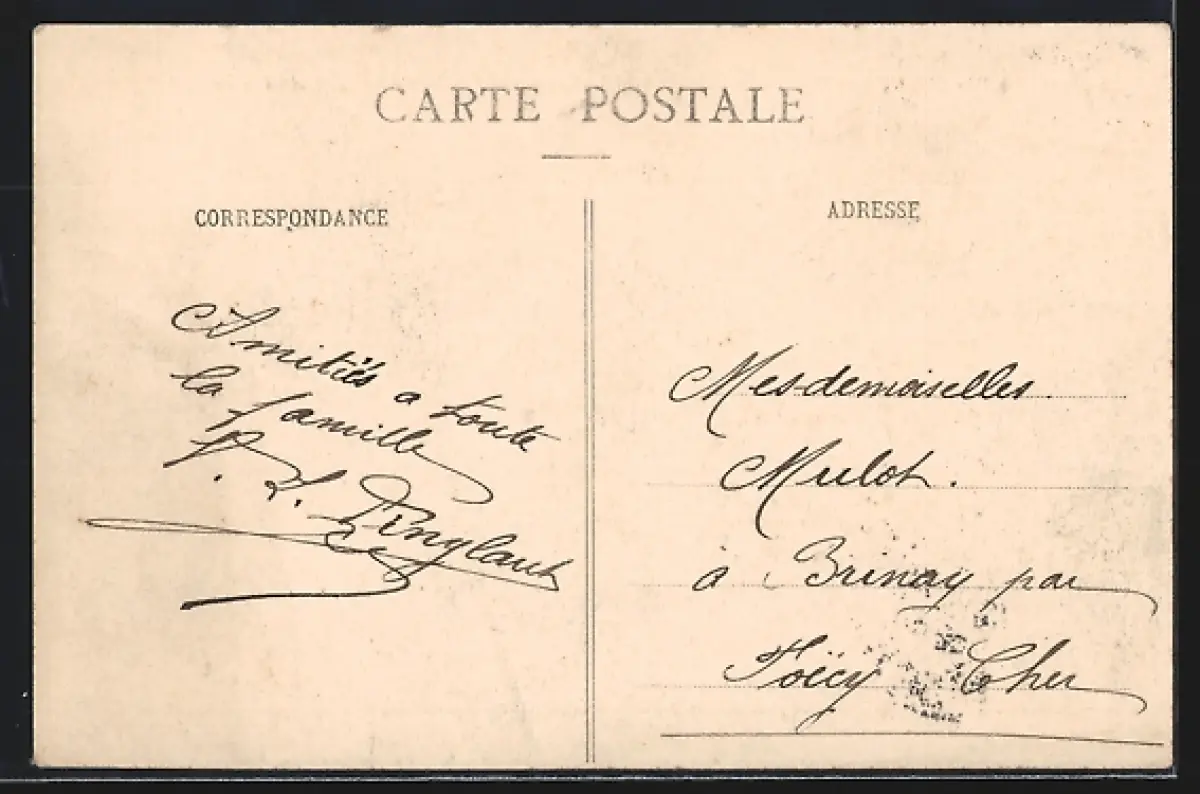 CARTE POSTALE
CORRESPONDANCE
ADRESSE
Amitiés a toute
la famille
P. L.
Mesdemoiselles.
Mulot.
à Brinay par
Foëcy Cher